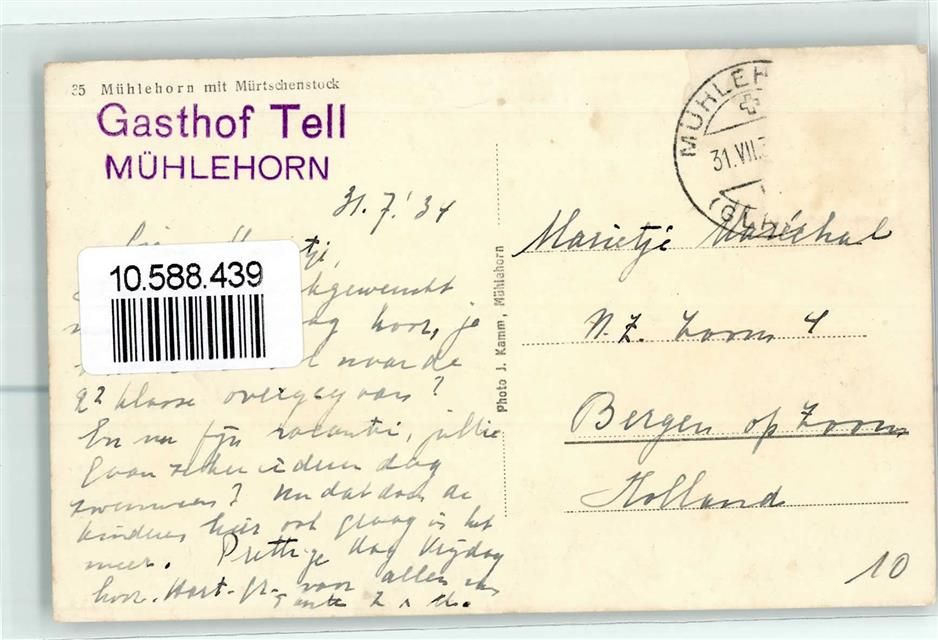 35 Mühlehorn mit Mürtschenstock
Gasthof Tell
MÜHLEHORN
MÜHLEH
31.VII.3
(GL
31.7.'34
10.588.439
hoor, je
naar de
2e klasse overgegaan?
En nu fijn vacantie, jullie
gaan zeker iedere dag
zwemmen? Nu dat doen de
kinderen hier ook graag in het
meer. Prettige dag Vrijdag
hoor. Hart. gr. voor allen van
tante
Photo J. Kamm, Mühlehorn
Marietje Maréchal
N.Z. Zoom 4
Bergen op Zoom
Holland
10